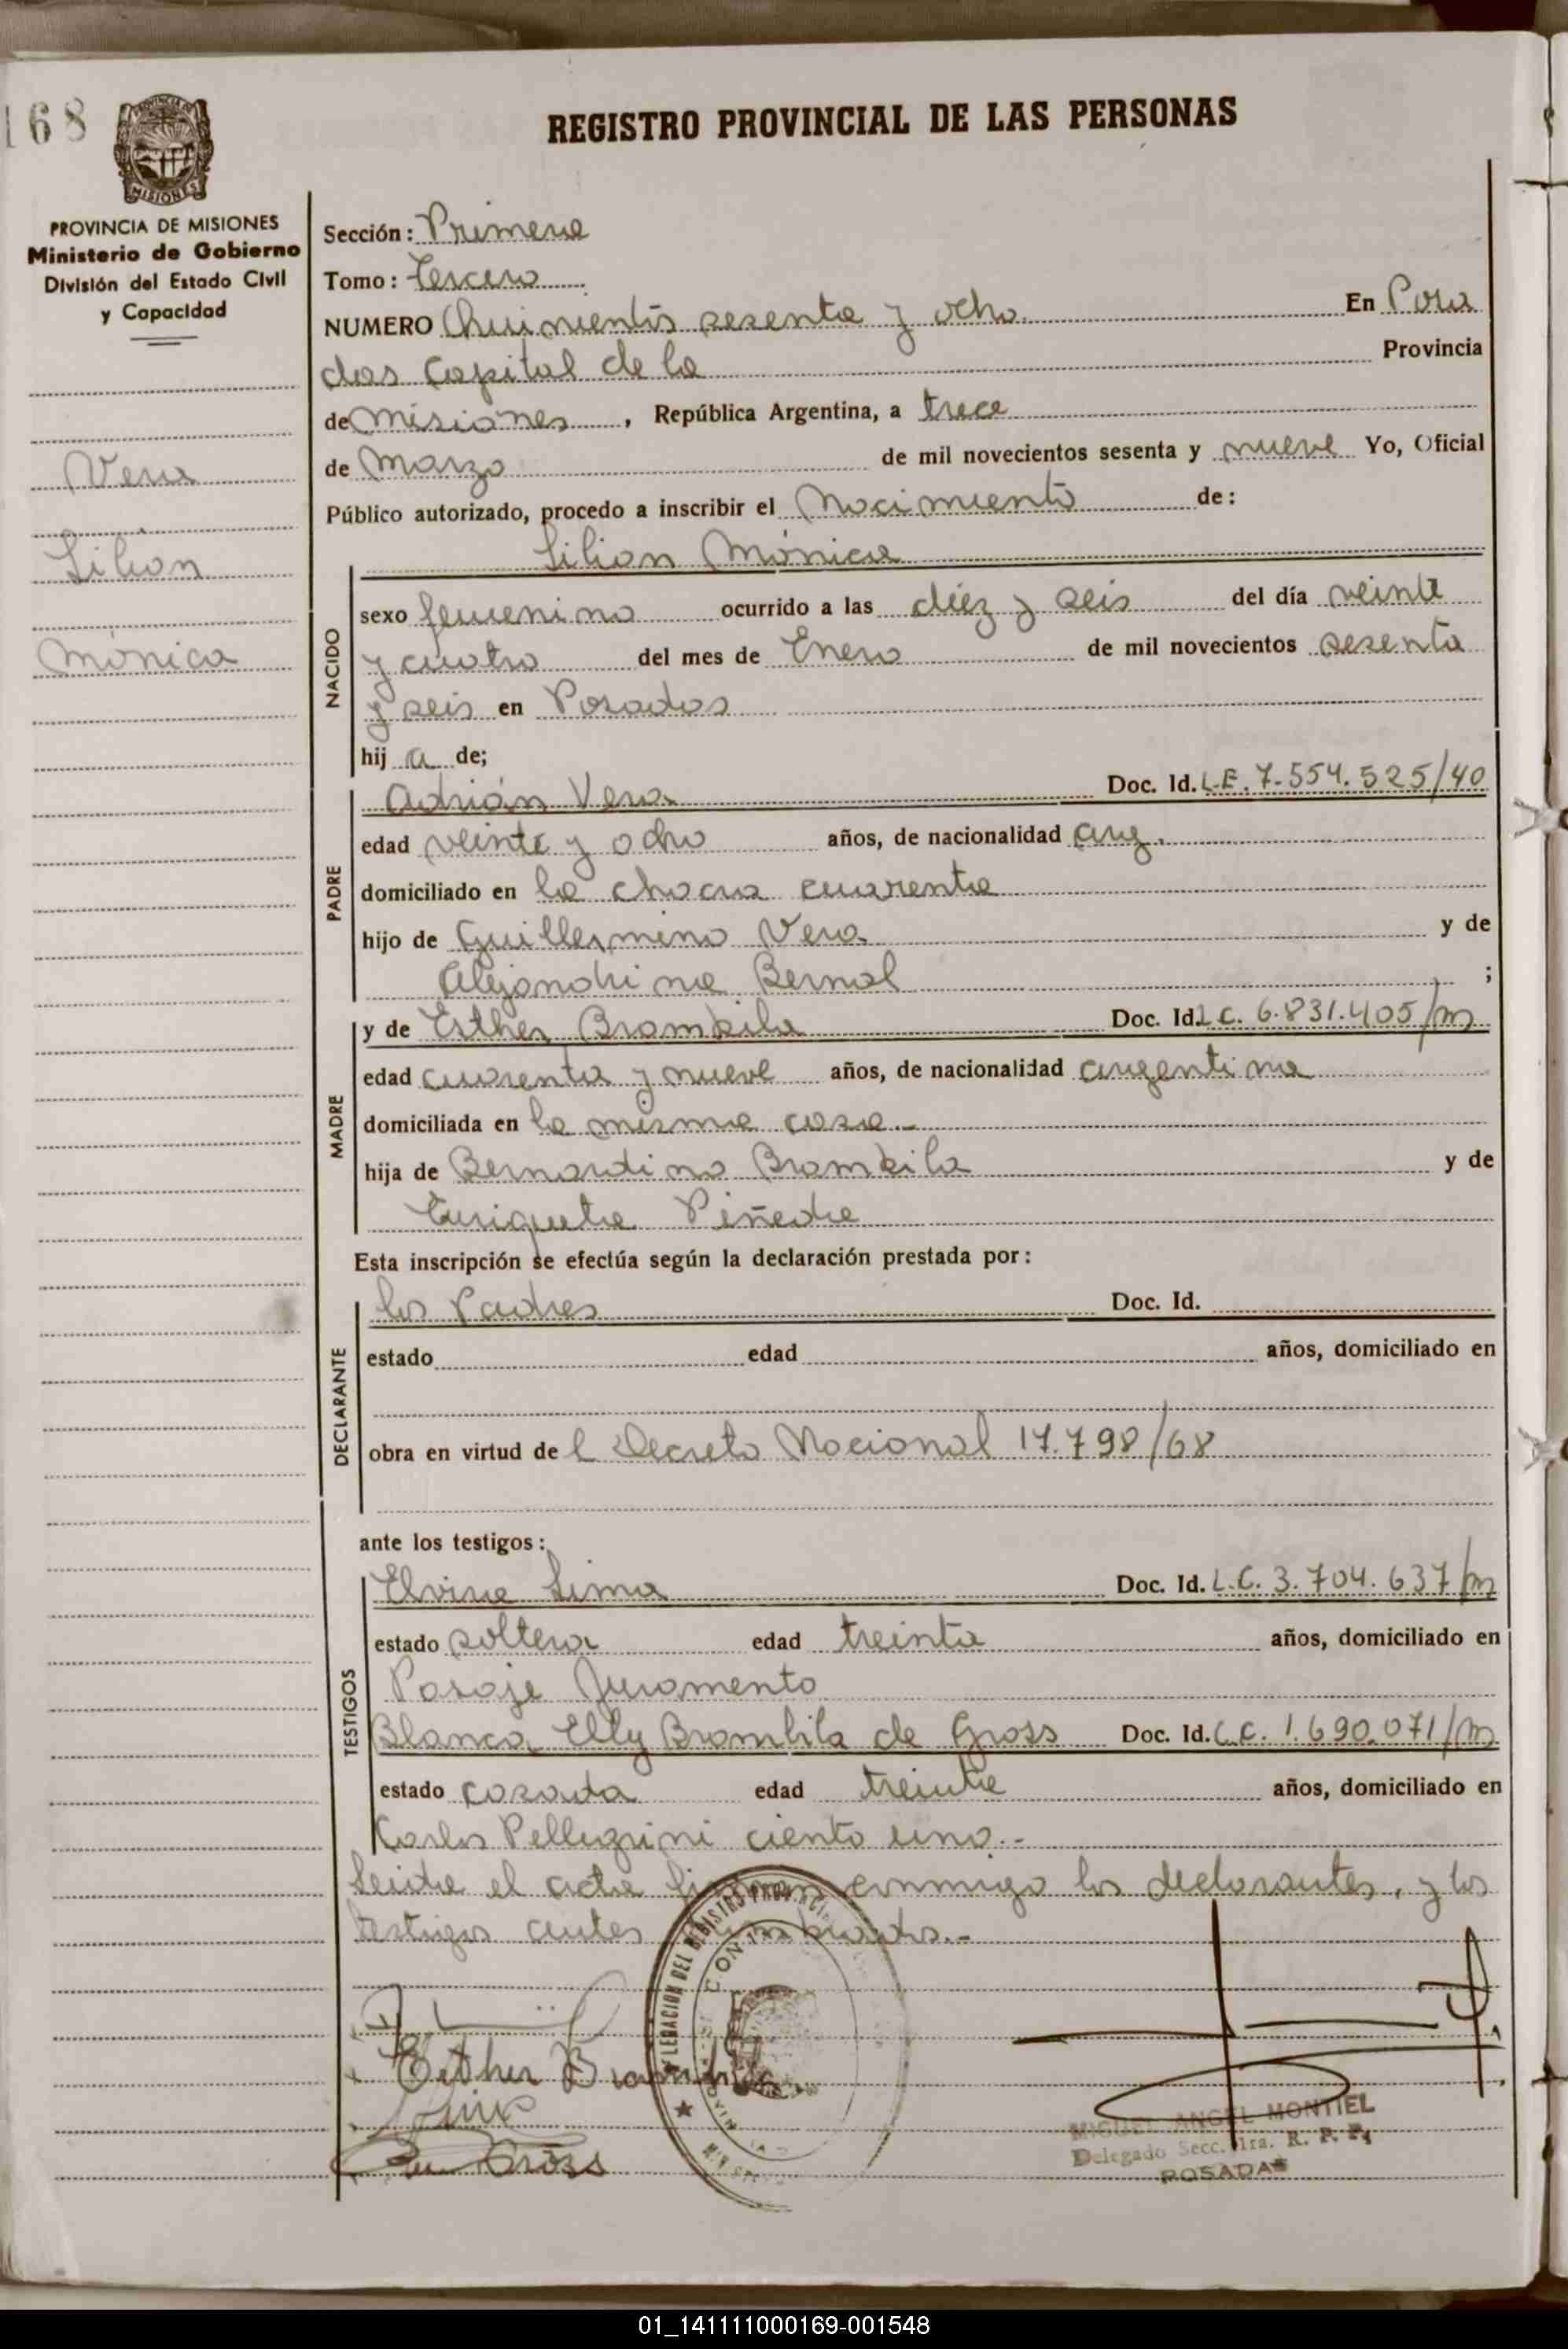 168
MISIONES
PROVINCIA DE MISIONES
Ministerio de Gobierno
División del Estado Civil
y Capacidad
Vera
Lilian
Mónica
REGISTRO PROVINCIAL DE LAS PERSONAS
Sección: Primera
Tomo: Tercero
NUMERO Quinientos sesenta y ocho En Posa
das Capital de la Provincia
de Misiones, República Argentina, a trece
de Marzo de mil novecientos sesenta y nueve Yo, Oficial
Público autorizado, procedo a inscribir el Nacimiento de:
Lilian Mónica
NACIDO
sexo femenino ocurrido a las diéz y seis del día veinte
y cuatro del mes de Enero de mil novecientos sesenta
y seis en Posadas
hij a de;
PADRE
Adrián Vera Doc. Id. L.E. 7.554.525/40
edad veinte y ocho años, de nacionalidad arg.
domiciliado en la chacra cuarenta
hijo de Guillermino Vera y de
Alejandrina Bernal ;
MADRE
y de Esther Brambila Doc. Id. L.C. 6.831.405/m
edad cuarenta y nueve años, de nacionalidad argentina
domiciliada en la misma casa.-
hija de Bernardino Brambila y de
Enriqueta Piñeda
Esta inscripción se efectúa según la declaración prestada por:
DECLARANTE
los Padres Doc. Id.
estado edad años, domiciliado en
obra en virtud de l Decreto Nacional 17.798/68
ante los testigos:
TESTIGOS
Elvira Lima Doc. Id. L.C. 3.704.637/m
estado soltera edad treinta años, domiciliado en
Pasaje Juramento
Blanca Elly Brambila de Gross Doc. Id. L.C. 1.690.071/m
estado casada edad treinta años, domiciliado en
Carlos Pellegrini ciento uno.-
Leida el acta firman conmigo los declarantes, y los
testigos antes nombrados.-
Esther Brambila
Gross
MIGUEL ANGEL MONTIEL
Delegado Secc. 1ra. R. P. P.
POSADAS
01_141111000169-001548